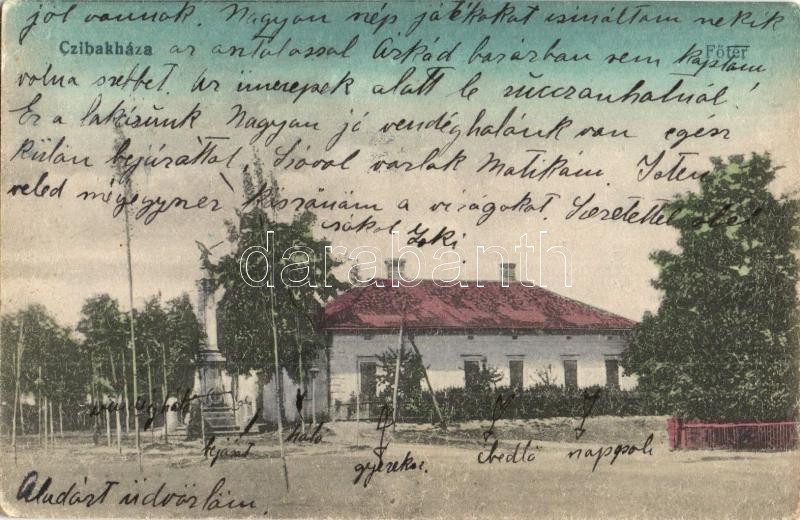 jól vannak. Nagyon szép játékokat csináltam nekik
Czibakháza Főtér
az asztalossal Árkád bazárban sem kaptam
volna szebbet. Az ünnepek alatt le ruccanhatnál!
Ez a lakásunk Nagyon jó vendégszobánk van egész
külön bejárattal. Szóval várlak Matikám. Isten
veled mégegyszer köszönöm a virágokat. Szeretettel
csókol Zoki
darabanth
vendégháló bejárat háló gyereksz. ebédlő nappali
Aladárt üdvözlöm.